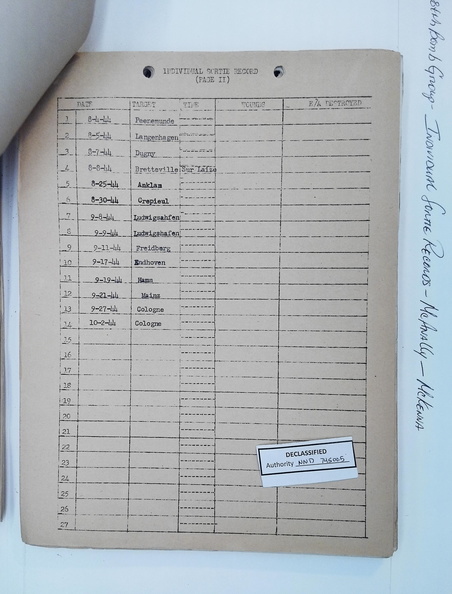 INDIVIDUAL SORTIE RECORD
(PAGE II)
DATE TARGET TIME TOUNDS E/A DESTROYED
1 8-4-44 Peenemunde
2 8-5-44 Langenhagen
3 8-7-44 Dugny
4 8-8-44 Bretteville Sur Laize
5 8-25-44 Anklam
6 8-30-44 Crepieul
7 9-8-44 Ludwigsahfen
8 9-9-44 Ludwigshafen
9 9-11-44 Freidberg
10 9-17-44 Endhoven
11 9-19-44 Hamm
12 9-21-44 Mainz
13 9-27-44 Cologne
14 10-2-44 Cologne
15
16
17
18
19
20
21
22
23
24
25
26
27
DECLASSIFIED
Authority NND 745005
Bomb Group - Individual Sortie Records - McAnally - McKenna